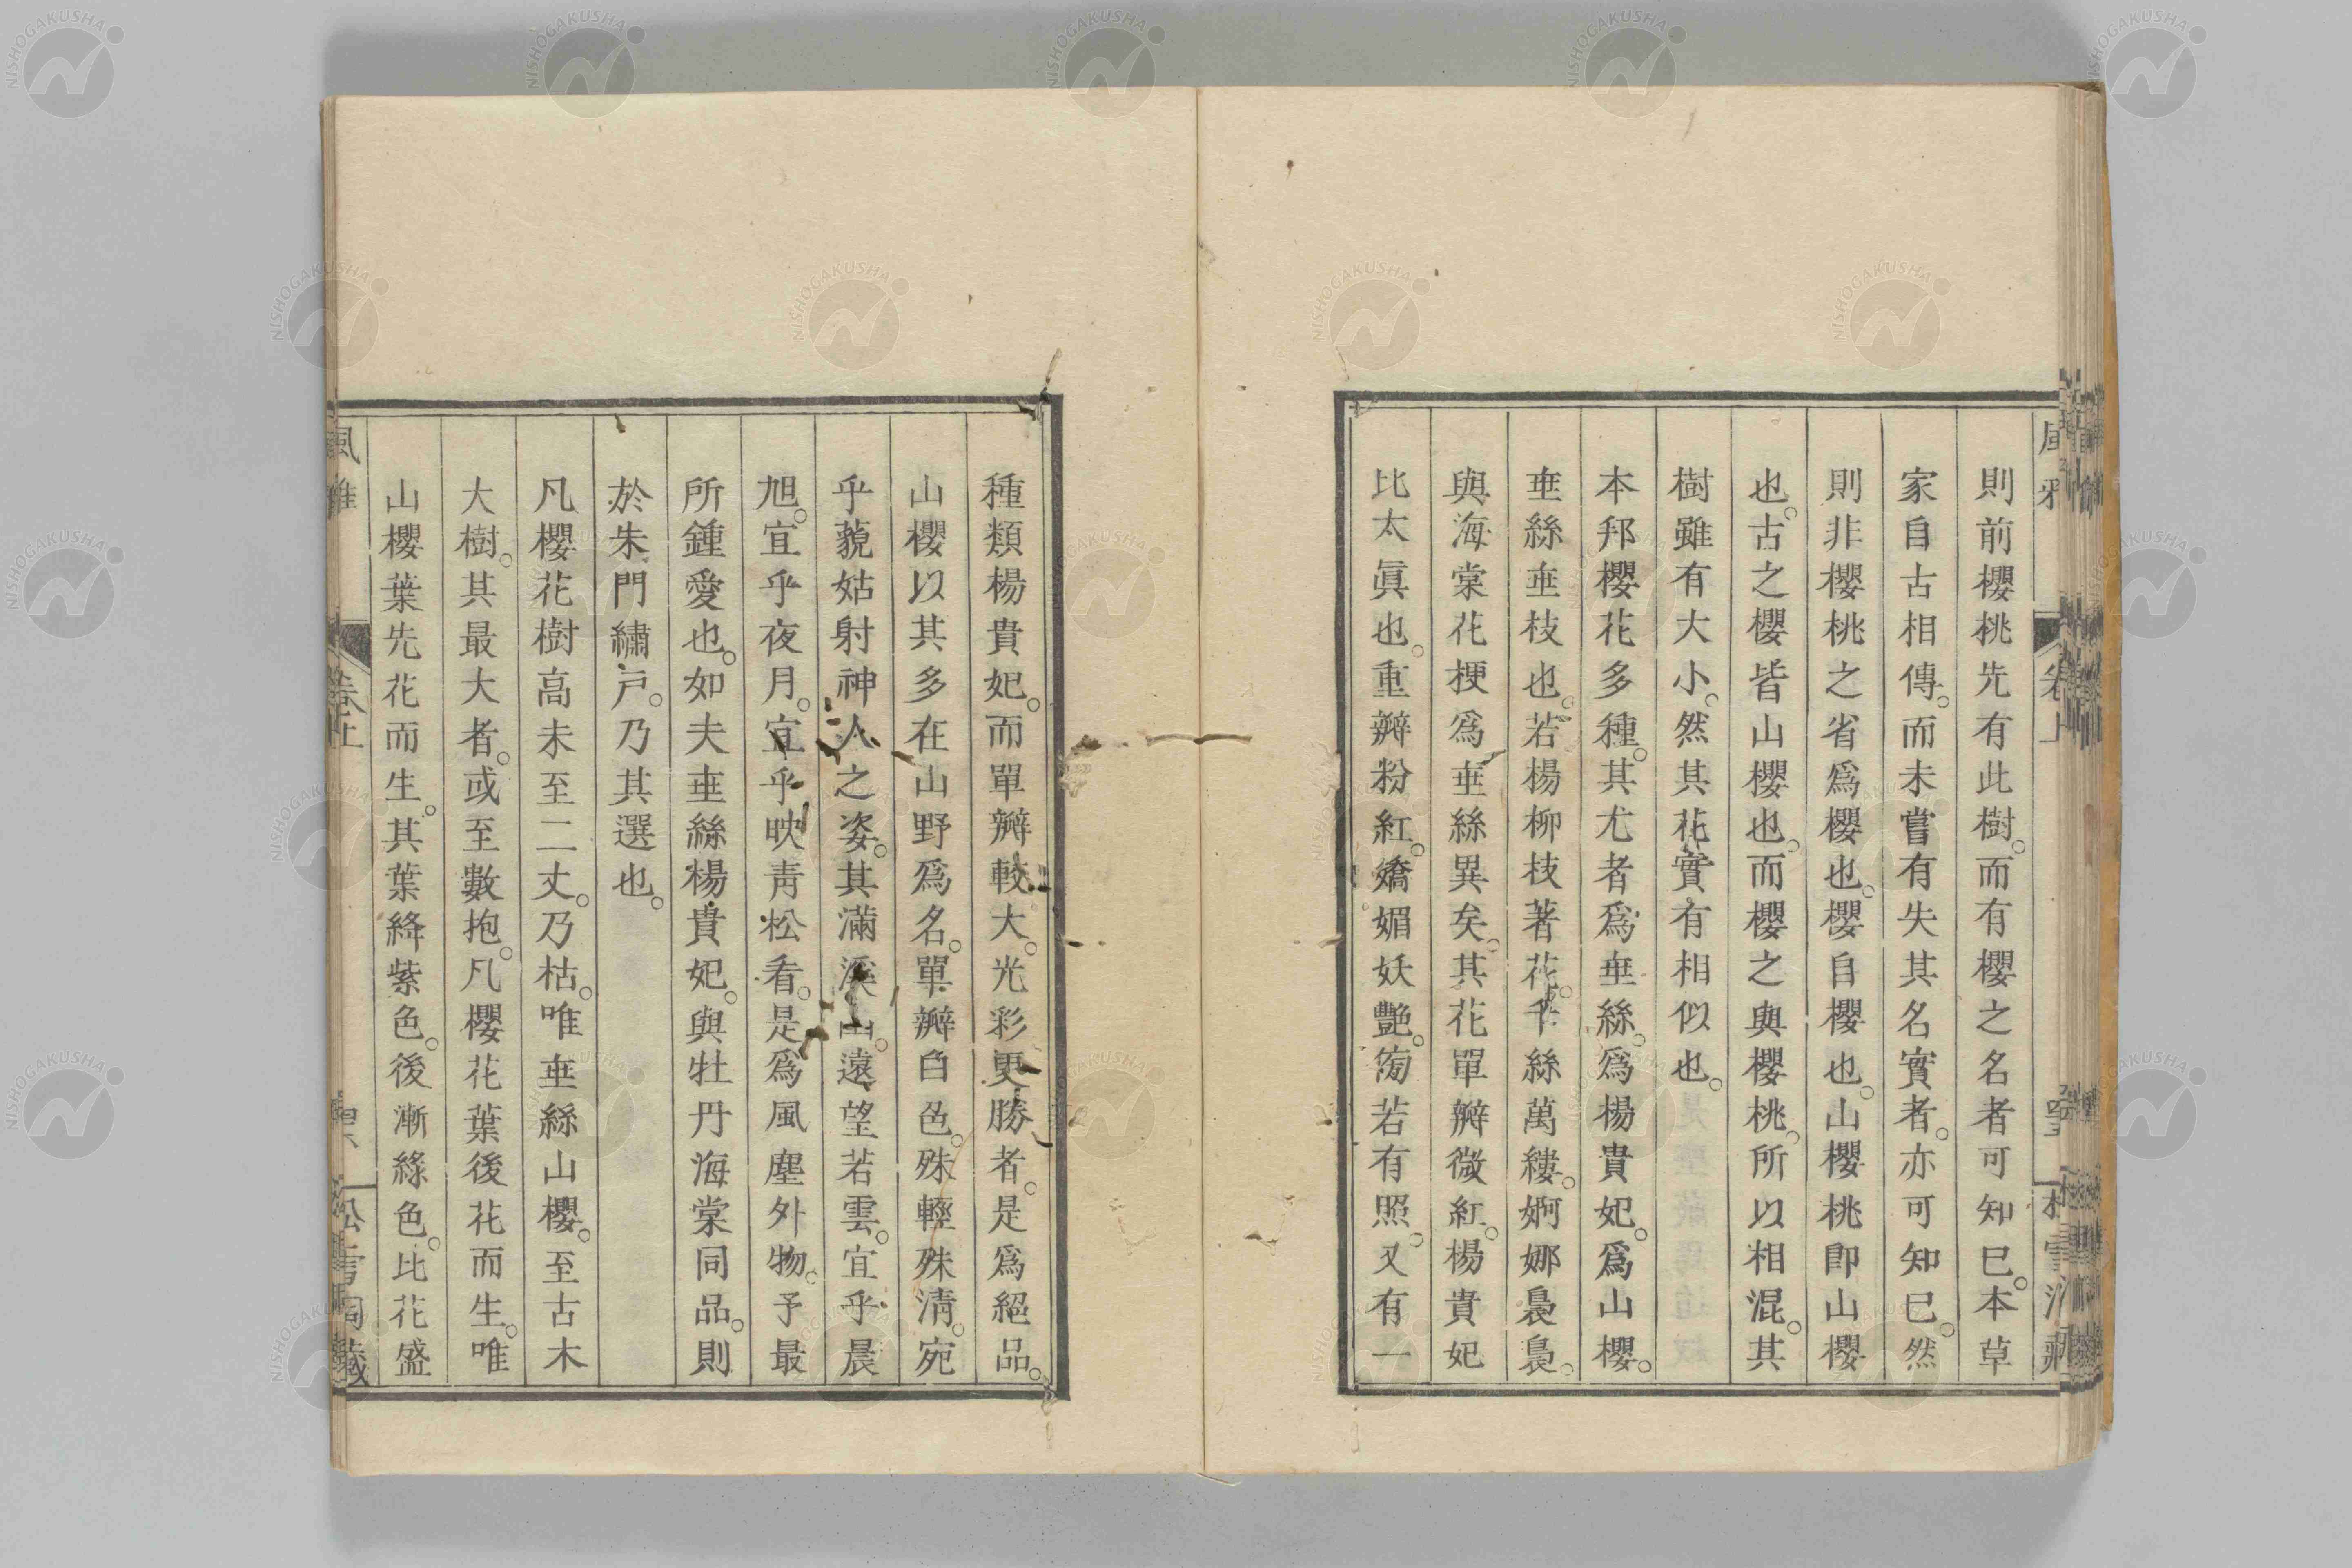 則前櫻桃先有此樹。而有櫻之名者可知巳。本草
家自古相傳。而未嘗有失其名實者。亦可知巳。然
則非櫻桃之省爲櫻也。櫻自櫻也。山櫻桃卽山櫻
也。古之櫻皆山櫻也。而櫻之與櫻桃。所以相混。其
樹雖有大小。然其花實有相似也。
本邦櫻花多種。其尤者爲垂絲。爲楊貴妃。爲山櫻。
垂絲垂枝也。若楊柳枝著花。千絲萬縷。婀娜裊裊。
與海棠花梗爲垂絲異矣。其花單瓣微紅。楊貴妃
比太眞也。重瓣粉紅。嬌媚妖艷。衒若有照。又有一
種類楊貴妃。而單瓣較大。光彩更勝者。是爲絕品。
山櫻以其多在山野爲名。單瓣白色。殊輕殊淸。宛
乎藐姑射神人之姿。其滿溪山。遠望若雲。宜乎晨
旭。宜乎夜月。宜乎映靑松看。是爲風塵外物。予最
所鍾愛也。如夫垂絲楊貴妃。與牡丹海棠同品。則
於朱門繡戸。乃其選也。
凡櫻花樹高未至二丈。乃枯。唯垂絲山櫻。至古木
大樹。其最大者。或至數抱。凡櫻花葉後花而生。唯
山櫻葉先花而生。其葉絳紫色。後漸綠色。比花盛
風雅
卷上
NISHOGAKUSHA